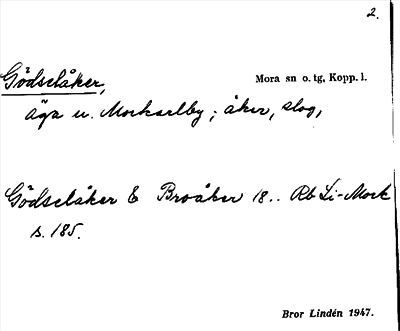 2.
Gödselåker,
Mora sn o. tg, Kopp. l.
äga u. Morkarlby; åker, slog,
Gödselåker & Broåker 18.. Rb Li-Mork
s. 185.
Bror Lindén 1947.